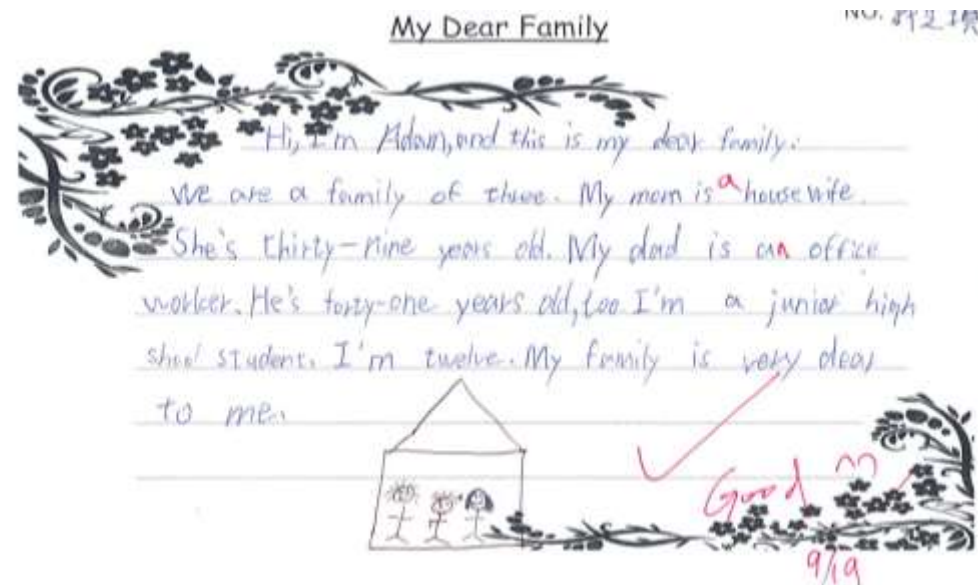 My Dear Family
NO.
Hi, I'm Adam, and this is my dear family.
We are a family of three. My mom is a housewife.
She's thirty-nine years old. My dad is an office
worker. He's forty-one years old, too I'm a junior high
shool student. I'm twelve. My family is very dear
to me.
Good
9/19